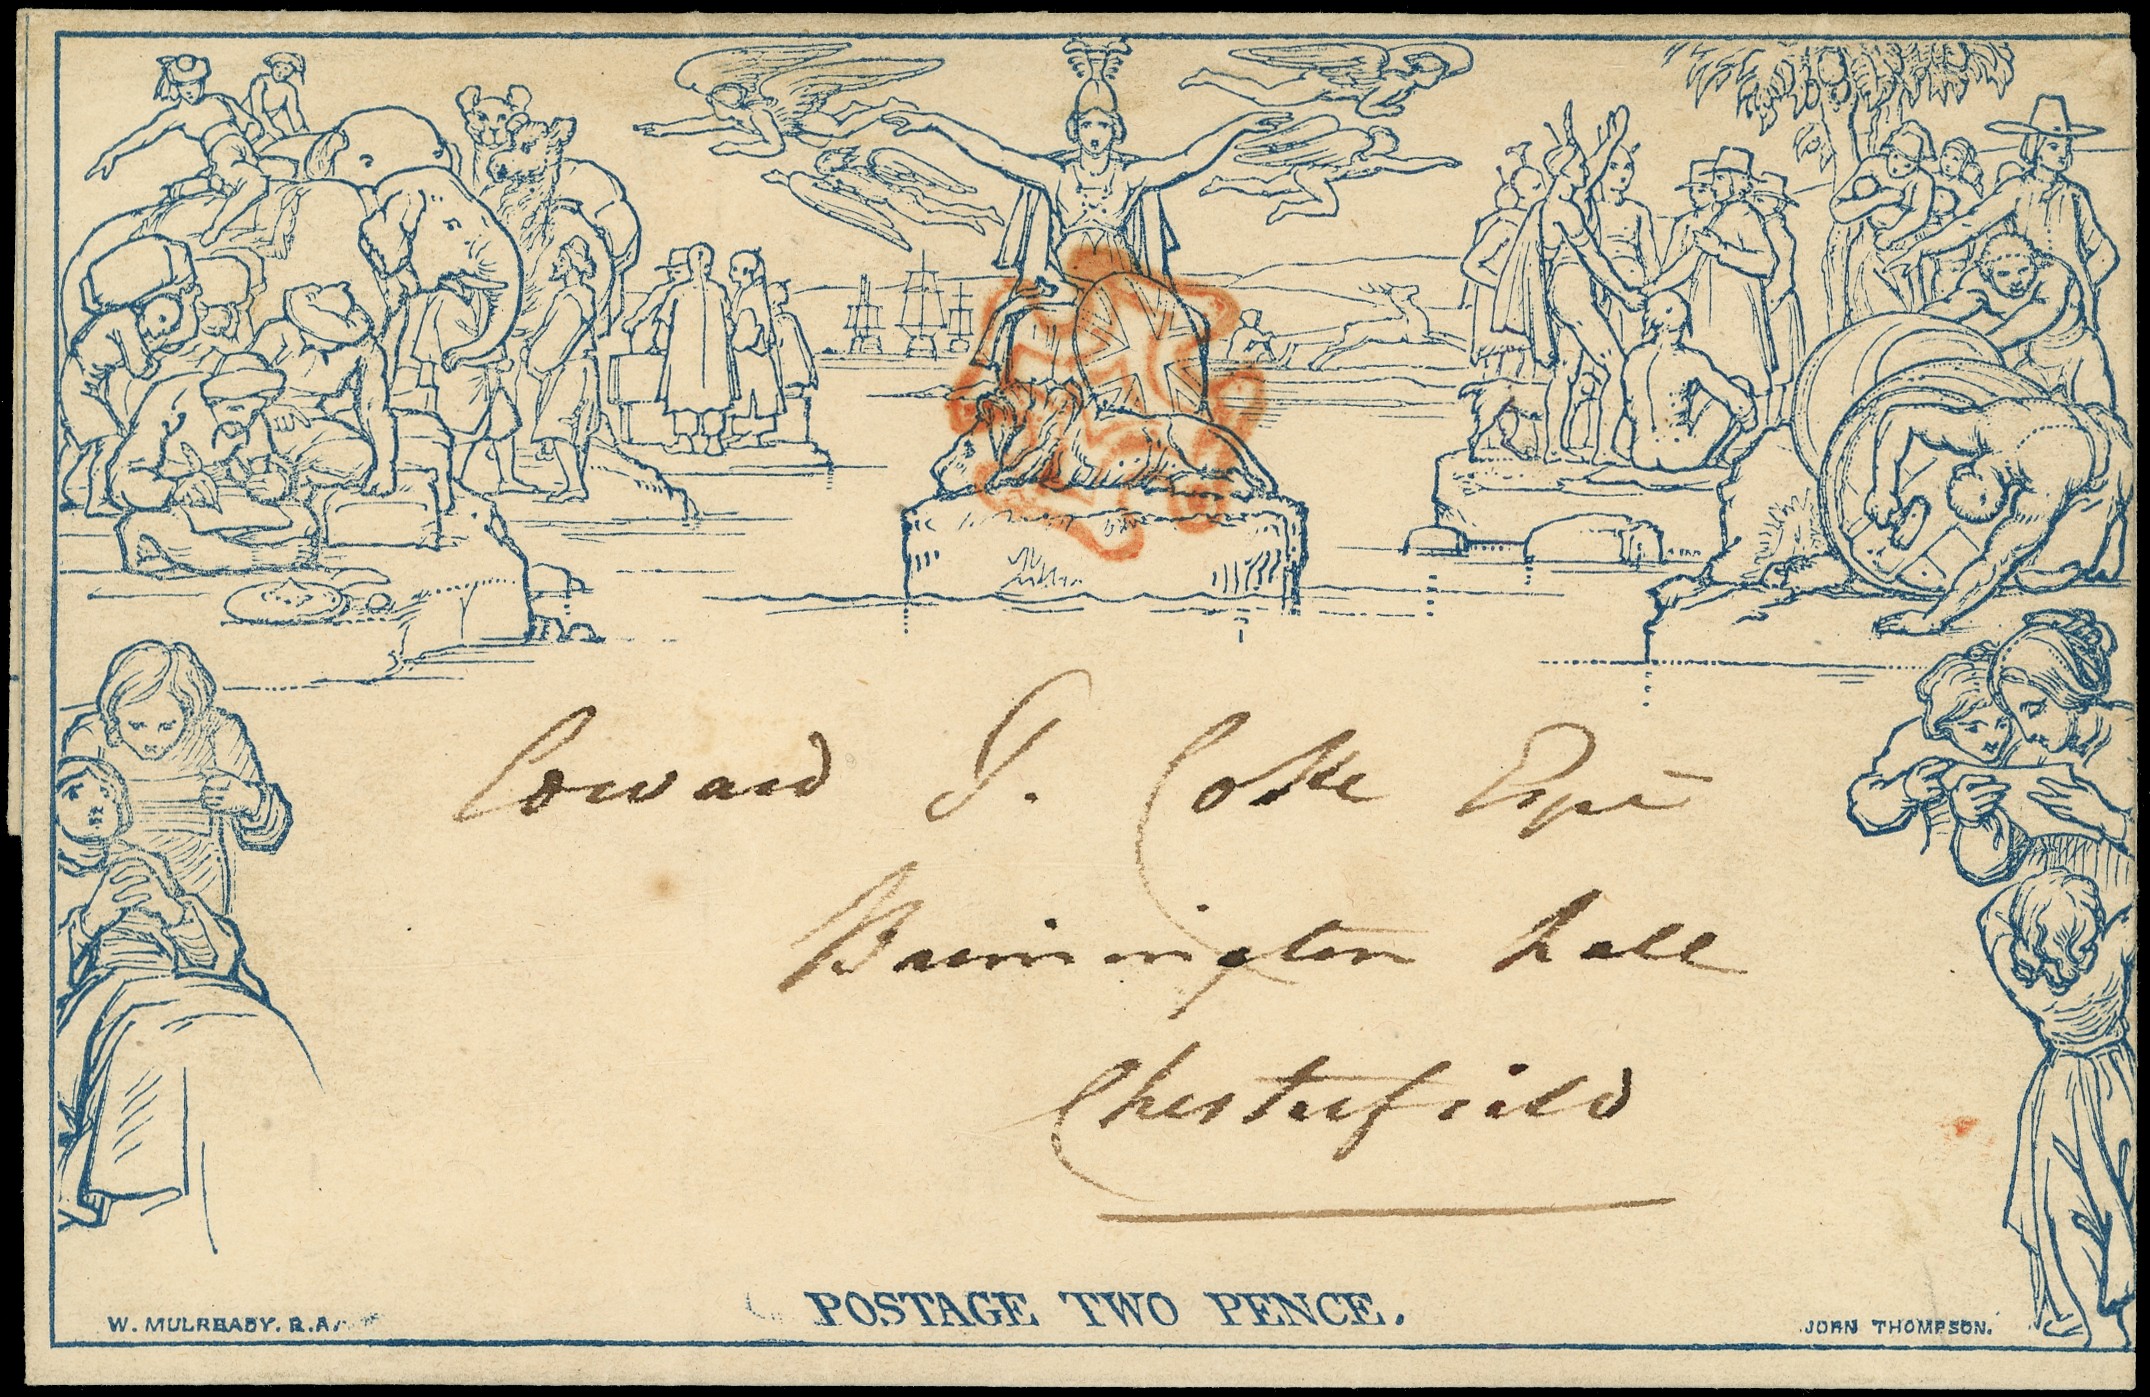 Edward T. Coke Esqre
Brimington hall
Chesterfield
POSTAGE TWO PENCE.
W. MULREADY. R.A.
JOHN THOMPSON.